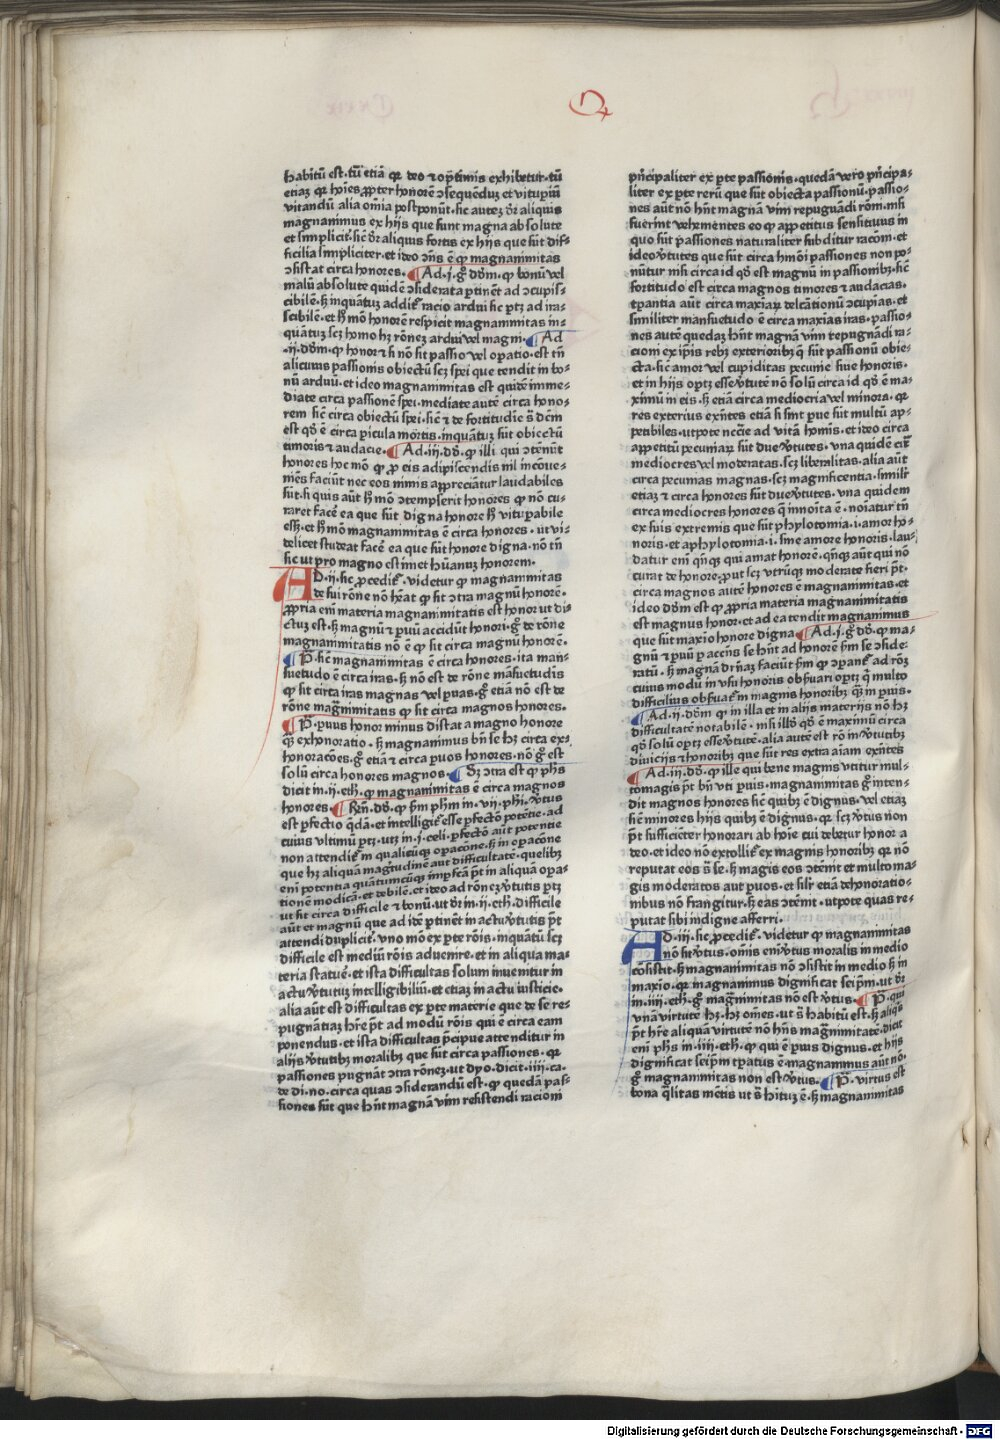 habitū est. tū etiā qꝛ deo ⁊ optimis exhibetur. tū
etiaȝ qꝛ hoies ꝓpter honorē ↄsequēduȝ et vituꝑiū
vitandū alia om̄ia postponūt. sic auteȝ dꝛ aliquis
magnanimus ex hijs que sunt magna absolute
et simplicit̉. sic̄ dꝛ aliquis fortis ex hijs que sūt dif-
ficilia simpliciter. et ideo ↄn̄s ē ꝙ magnanimitas
ↄsistat circa honores. Ad .j. gͦ dō̄m. ꝙ bonū vel
malū absolute quidē ↄsiderata ꝑtinēt ad ↄcupis-
cibilē. sȝ inquātuȝ addit̉ racio ardui sic ꝑtȝ ad ira-
scibilē. et hͦ mō honorē respicit magnanimitas in-
quātuȝ scȝ homo hȝ rōneȝ ardui vel magni. Ad
.ij. dō̄m. ꝙ honor ⁊ si nō sit passio vel oꝑatio. est tn̄
alicuius passionis obiectū scȝ spei que tendit in bo-
nū arduū. et ideo magnanimitas est quidē imme-
diate circa passionē spei. mediate autē circa hono-
rem sic̄ circa obiectū spei. sic̄ ⁊ de fortitudīe s̄ dcm̄
est qd̉ ē circa ꝑicula mortis. inquātuȝ sūt obiectū
timoris ⁊ audacie. Ad .iij. dō. ꝙ illi qui ↄtēnūt
honores hoc mō ꝙ ꝓ eis adipiscendis nil incōue-
niēs faciūt nec eos nimis appreciātur laudabiles
sūt. si quis aūt hͦ mō ↄtempserit honores ꝙ nō cu-
raret facē ea que sūt digna honore hͦ vituꝑabile
essȝ. et hͦ mō magnanimitas ē circa honores. ut vi-
delicet studeat facē ea que sūt honore digna. nō tn̄
sic ut pro magno estimet hūanuȝ honorem.
AD .ij. sic ꝓcedit̉. videtur ꝙ magnanimitas
de sui rōne nō hēat ꝙ sit ↄtra magnū honorē.
ꝓpria enī materia magnanimitatis est honor ut di-
ctuȝ est. sȝ magnū ⁊ ꝑuū accidūt honori. gͦ de rōne
magnanimitatis nō ē ꝙ sit circa magnū honorē.
P̄. sic̄ magnanimitas ē circa honores. ita man-
suetudo ē circa iras. sȝ nō est de rōne māsuetudis
ꝙ sit circa iras magnas vel ꝑuas. gͦ etiā nō est de
rōne magnimitatis ꝙ sit circa magnos honores.
P̄. ꝑuus honor minus distat a magno honore
qͣȝ exhonoratio. sȝ magnanimus bn̄ se hȝ circa ex-
honoraciōes. gͦ etiā ⁊ circa ꝑuos honores. nō gͦ est
solū circa honores magnos. Sȝ ↄtra est ꝙ ph̄s
dicit in .ij. eth. ꝙ magnanimitas ē circa magnos
honores. Rn̄. dō. ꝙ ẜm phm̄ in .vij. phi. v̉tus
est ꝑfectio qd̄ā. et intelligit̉ esse ꝑfectō potētie. ad
cuius vltimū ꝑtȝ. utȝ in .j. celi. ꝑfectō aūt potentie
non attendit̉ in qualicūqȝ oꝑacōne. sȝ in oꝑacōne
que hȝ aliquā magtudinē aut difficultatē. quelibȝ
enī potentia quātumcūqȝ imꝑfcā pt̄ in aliquā oꝑa-
tionē modicā. et debilē. et ideo ad rōneȝ v̉tutis ꝑtȝ
ut sit circa difficile ⁊ bonū. ut dꝛ in .ij. eth. difficile
aūt et magnū que ad idē ꝑtinēt in actu v̉tutis pt̄
attendi duplicit̉. vno mō ex ꝑte rōis. inquātū scȝ
difficile est mediū rōis aduenire. et in aliqua ma-
teria statuē. et ista difficultas solum inuenitur in
actu v̉tutuȝ intelligibiliū. et etiaȝ in actu iusticie.
alia aūt est difficultas ex ꝑte materie que de se re-
pugnātiaȝ hr̄e pt̄ ad modū rōis qui ē circa eam
ponendus. et ista difficultas p̄cipue attenditur in
alijs v̉tutibȝ moralibȝ que sūt circa passiones. qꝛ
passiones pugnāt ↄtra rōneȝ. ut dyo. dicit .iiij. ca.
de di. no. circa quas ↄsiderandū est. ꝙ quedā pas-
siones sūt que hn̄t magnā vim resistendi racioni
pͥncipaliter ex ꝑte passionis. quedā vero pͥncipa-
liter ex ꝑte rerū que sūt obiecta passionū. passio-
nes aūt nō hn̄t magnā vim repugnādi rōni. nisi
fuerint vehementes eo ꝙ appetitus sensitiuus in
quo sūt passiones naturaliter subditur racōni. et
ideo v̉tutes que sūt circa hmōi passiones non po-
nūtur nisi circa id qd̉ est magnū in passionibȝ. sic̄
fortitudo est circa magnos timores ⁊ audacias.
tꝑantia aūt circa maxiaꝝ delcātionū ↄcupiās. et
similiter mansuetudo ē circa maxias iras. passio-
nes autē quedaȝ hn̄t magnā vim repugnādi ra-
cioni ex ip̄is rebȝ exteriorībȝ q̄ sūt passionū obie-
cta. sic̄ amor vel cupiditas pecunie siue honoris.
et in hijs oꝑtȝ esse v̉tutē nō solū circa id qd̉ ē ma-
ximū in eis. sȝ etiā circa mediocria vel minora. qꝛ
res exterius exn̄tes etiā si sint ꝑue sūt multū ap-
petibiles. utpote necc̄ie ad vitā homīs. et ideo circa
appetitū pecuniaꝝ sūt due v̉tutes. vna quidē circͣ
mediocres vel moderatas. scȝ liberalitas. alia aūt
circa pecunias magnas. scȝ magnificentia. similr̄
etiaȝ ⁊ circa honores sūt due v̉tutes. vna quidem
circa mediocres honores q̄ innoīata ē. noīatur tn̄
ex suis extremis que sūt phylotomia .i. amor ho-
noris. et aphylotomia .i. sine amore honoris. lau-
datur enī qn̄qȝ qui amat honorē. qn̄qȝ aūt qui nō
curat de honore. ꝓut scȝ vtrūqȝ moderate fieri pt̄.
circa magnos autē honores ē magnanimitas. et
ideo dō̄m est ꝙ ꝓpria materia magnanimitatis
est magnus honor. et ad ea tendit magnanimus
que sūt maxio honore digna. Ad .j. gͦ dō. ꝙ ma-
gnū ⁊ ꝑuū ꝑ accn̄s se hn̄t ad honorē ẜm se ↄside-
ratū. sȝ magnā drn̄aȝ faciūt ẜm ꝙ ↄꝑant̉ ad rōȝ
cuius modū in vsu honoris obẜuari oꝑtȝ qͦ multo
difficilius obẜuat̉ in magnis honoribȝ qͣȝ in ꝑuis.
Ad .ij. dō̄m ꝙ in ira et in alijs materijs nō hȝ
difficultatē notabilē. nisi illd̉ qd̉ ē maximū circa
qd̉ solū oꝑtȝ esse v̉tutē. alia autē est rō in v̉tutibȝ
diuicijs ⁊ honoribȝ que sūt res extra aiam exn̄tes
Ad .iij. dō. ꝙ ille qui bene magnis vtitur mul-
tomagis pt̄ bn̄ vti ꝑuis. magnanimitas gͦ inten-
dit magnos honores sic̄ quibȝ ē dignus. vel etiaȝ
sic̄ minores hijs quibȝ ē dignus. qꝛ scȝ v̉tus non
pt̄ sufficiēter honorari ab hoīe cui debetur honor a
deo. et ideo nō extollit̉ ex magnis honoribȝ qꝛ nō
reputat eos s̄ se. sȝ magis eos ↄtēnit et multo ma-
gis moderatos aut ꝑuos. et silr̄ etiā dehonoratio-
nibus nō frangitur. sȝ eas ↄtēnit. utpote quas re-
putat sibi indigne afferri.
AD .iij. sic ꝓcedit̉. videtur ꝙ magnanimitas
nō sit v̉tus. om̄is enī v̉tus moralis in medio
cōsistit. sȝ magnanimitas nō ↄsistit in medio sȝ in
maxio. qꝛ magnanimus dignificat seip̄m. ut dꝛ
in .iiij. eth. gͦ magnimitas nō est v̉tus. P̄. qui
vnā virtutē hȝ. hȝ om̄es. ut s̄ habitū est. sȝ aliqͥs
pt̄ hr̄e aliquā virtutē nō hn̄s magnimitatē. dicit
enī ph̄s in .iiij. eth. ꝙ qui ē ꝑuis dignus. et hijs
dignificat seip̄m tꝑatus ē. magnanimus aūt nō.
gͦ magnanimitas non est v̉tus. P̄. virtus est
bona qͣlitas mētis ut s̄ hītuȝ ē. sȝ magnanimitas
Digitalisierung gefördert durch die Deutsche Forschungsgemeinschaft - DFG